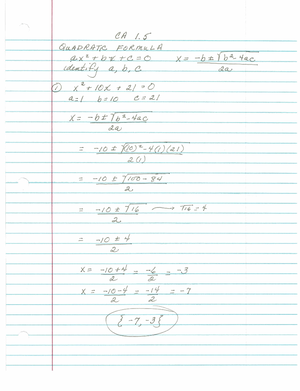 CA 1.5
QUADRATIC FORMULA
ax² + bx + c = 0 x = -b ± √b² - 4ac / 2a
identify a, b, c
① x² + 10x + 21 = 0
a=1 b=10 c=21
x = -b ± √b² - 4ac / 2a
= -10 ± √(10)² - 4(1)(21) / 2(1)
= -10 ± √100 - 84 / 2
= -10 ± √16 / 2 → √16 = 4
= -10 ± 4 / 2
x = -10+4 / 2 = -6 / 2 = -3
x = -10-4 / 2 = -14 / 2 = -7
{-7, -3}